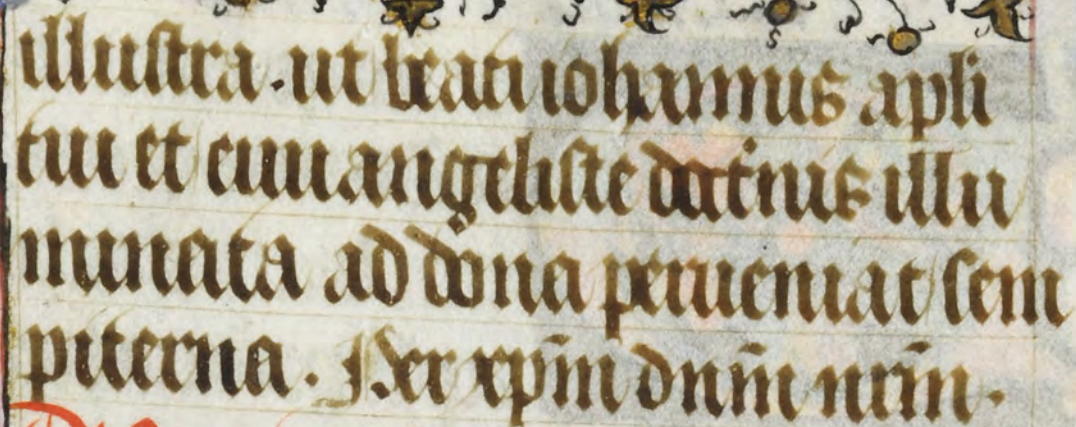 illustra. ut beati iohannis apłi
tui et euuangeliste doct'nis illu
minata ad dona perueniat sem
piterna. Per xp̄m dnm̄ nrm̄.